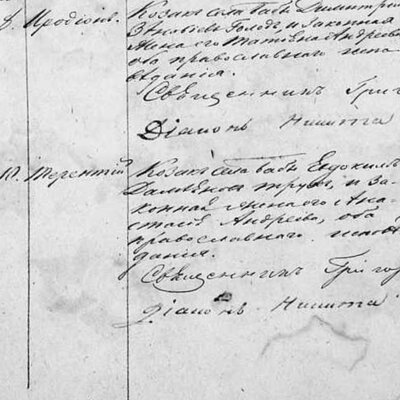 8. Иродіонъ. Козакъ села Бабъ Димитрій
Зѣновіевъ Голодъ, и законная
жена его Татіана Андреева
оба православнаго испо-
вѣданія.
Священникъ Григо
Діаконъ Никита
10. Терентій Козакъ села Бабъ Евдокимъ
Даміановъ Трушъ, и за-
конная жена его Ана-
стасія Андреева, оба
православнаго исповѣ-
данія.
Священникъ Григор
Діаконъ Никита